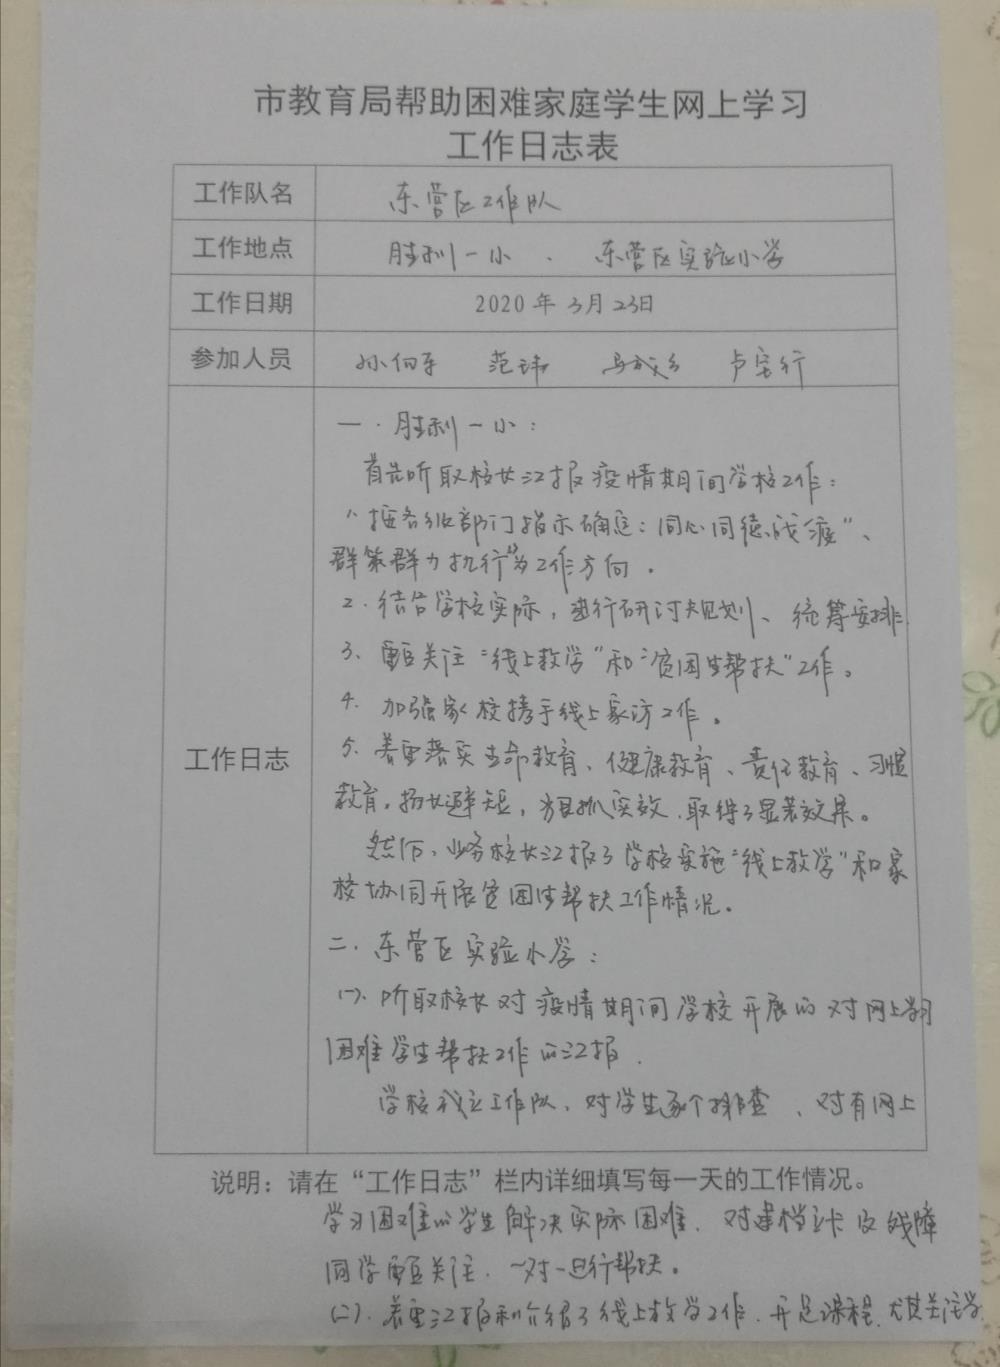 市教育局帮助困难家庭学生网上学习
工作日志表
工作队名 东营区工作队
工作地点 胜利一小 、 东营区实验小学
工作日期 2020年3月23日
参加人员 范玮
工作日志
一、胜利一小：
首先听取校长汇报疫情期间学校工作：
1、按各级部门指示确定：同心同德战"疫"、
群策群力执行为工作方向。
2、结合学校实际，进行研讨规划、统筹安排.
3、重点关注"线上教学"和"贫困生帮扶"工作。
4、加强家校携手线上家访工作。
5、着重落实生命教育、健康教育、责任教育、习惯
教育，扬长避短，狠抓实效，取得了显著效果。
然后，业务校长汇报了学校实施"线上教学"和家
校协同开展贫困生帮扶工作情况。
二、东营区实验小学：
(一)、听取校长对疫情期间学校开展的对网上学习
困难学生帮扶工作的汇报.
学校成立工作队，对学生逐个排查，对有网上
说明：请在“工作日志”栏内详细填写每一天的工作情况。
学习困难的学生解决实际困难，对建档立卡及残障
同学重点关注，一对一进行帮扶。
(二)、着重汇报和介绍了线上教学工作，开足课程，尤其关注学